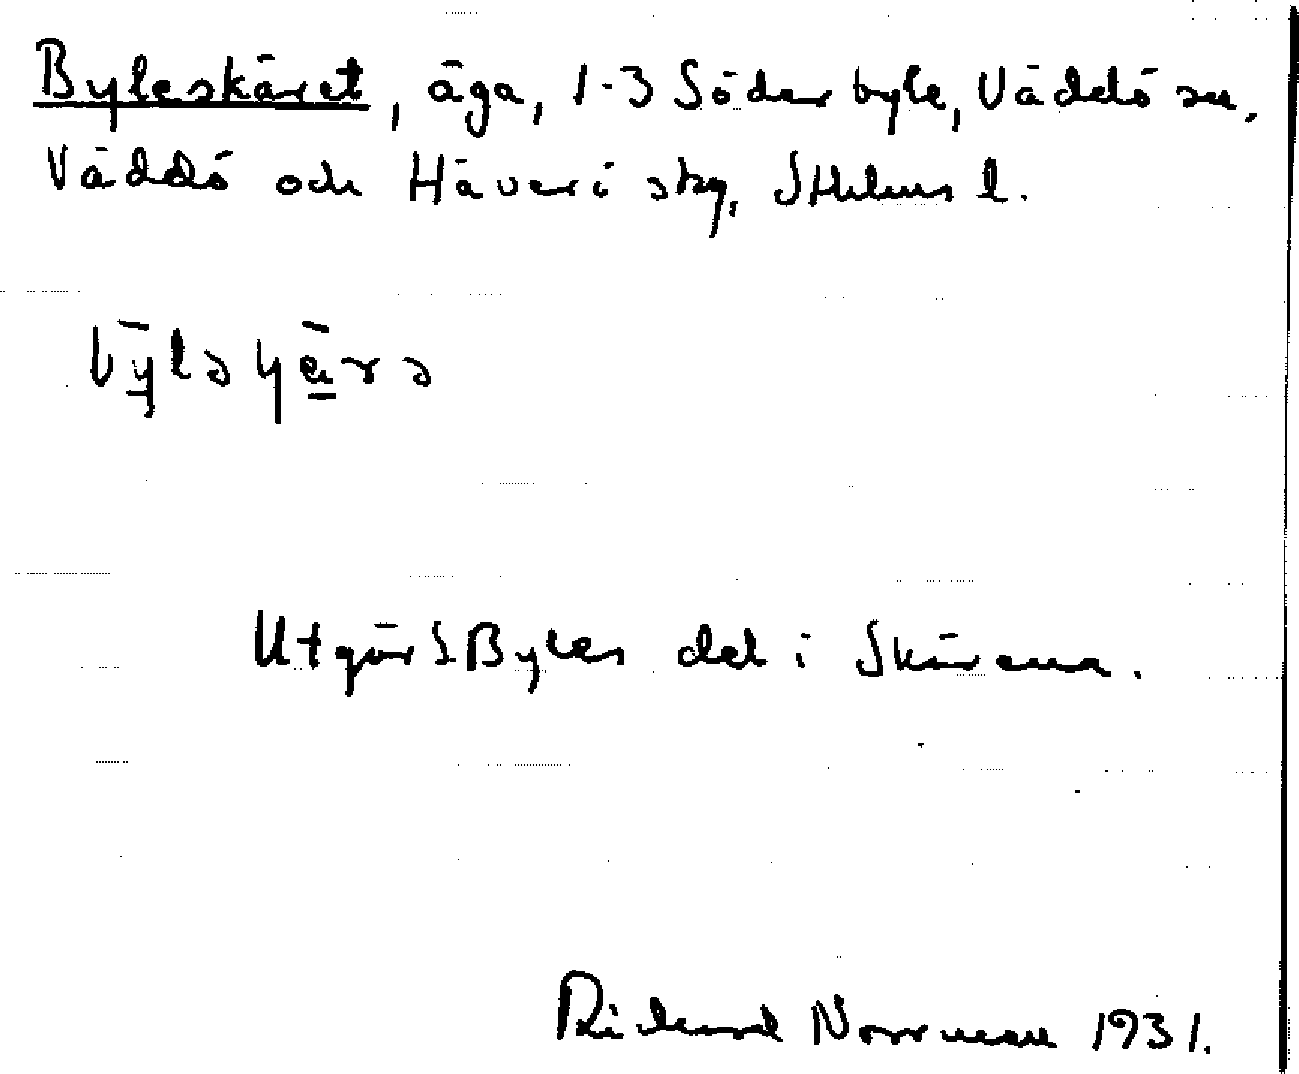 Byleskäret, äga, 1-3 Söderbyle, Väddö sn.
Väddö och Häverö skg, Sthlms l.
Utgör S Byles del i Skären.
Richard Norrman 1931.